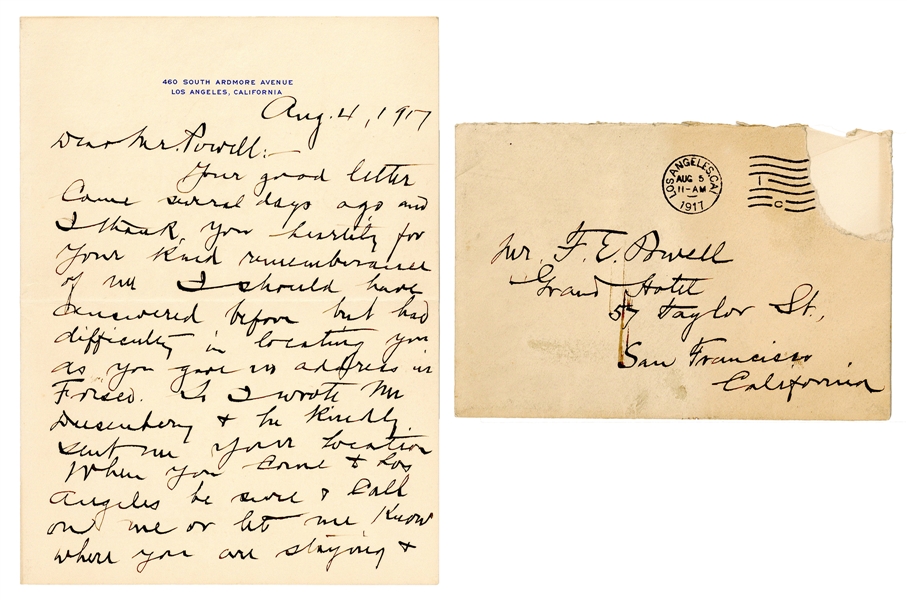 460 SOUTH ARDMORE AVENUE
LOS ANGELES, CALIFORNIA
Aug. 4, 1917
Dear Mr. Powell:—
Your good letter
Came several days ago and
I thank you heartily for
your kind rememberance
of me I should have
answered before but had
difficulty in locating you
as you gave no address in
So I wrote Mr
Duesenberg & he kindly
sent me your location
When you come to Los
Angeles be sure & Call
on me or let me Know
where you are staying &
LOS ANGELES, CAL
AUG 5
11-AM
1917
1
C
Mr. F. E. Powell
Grand Hotel
57 Taylor St.,
San Francisco
California